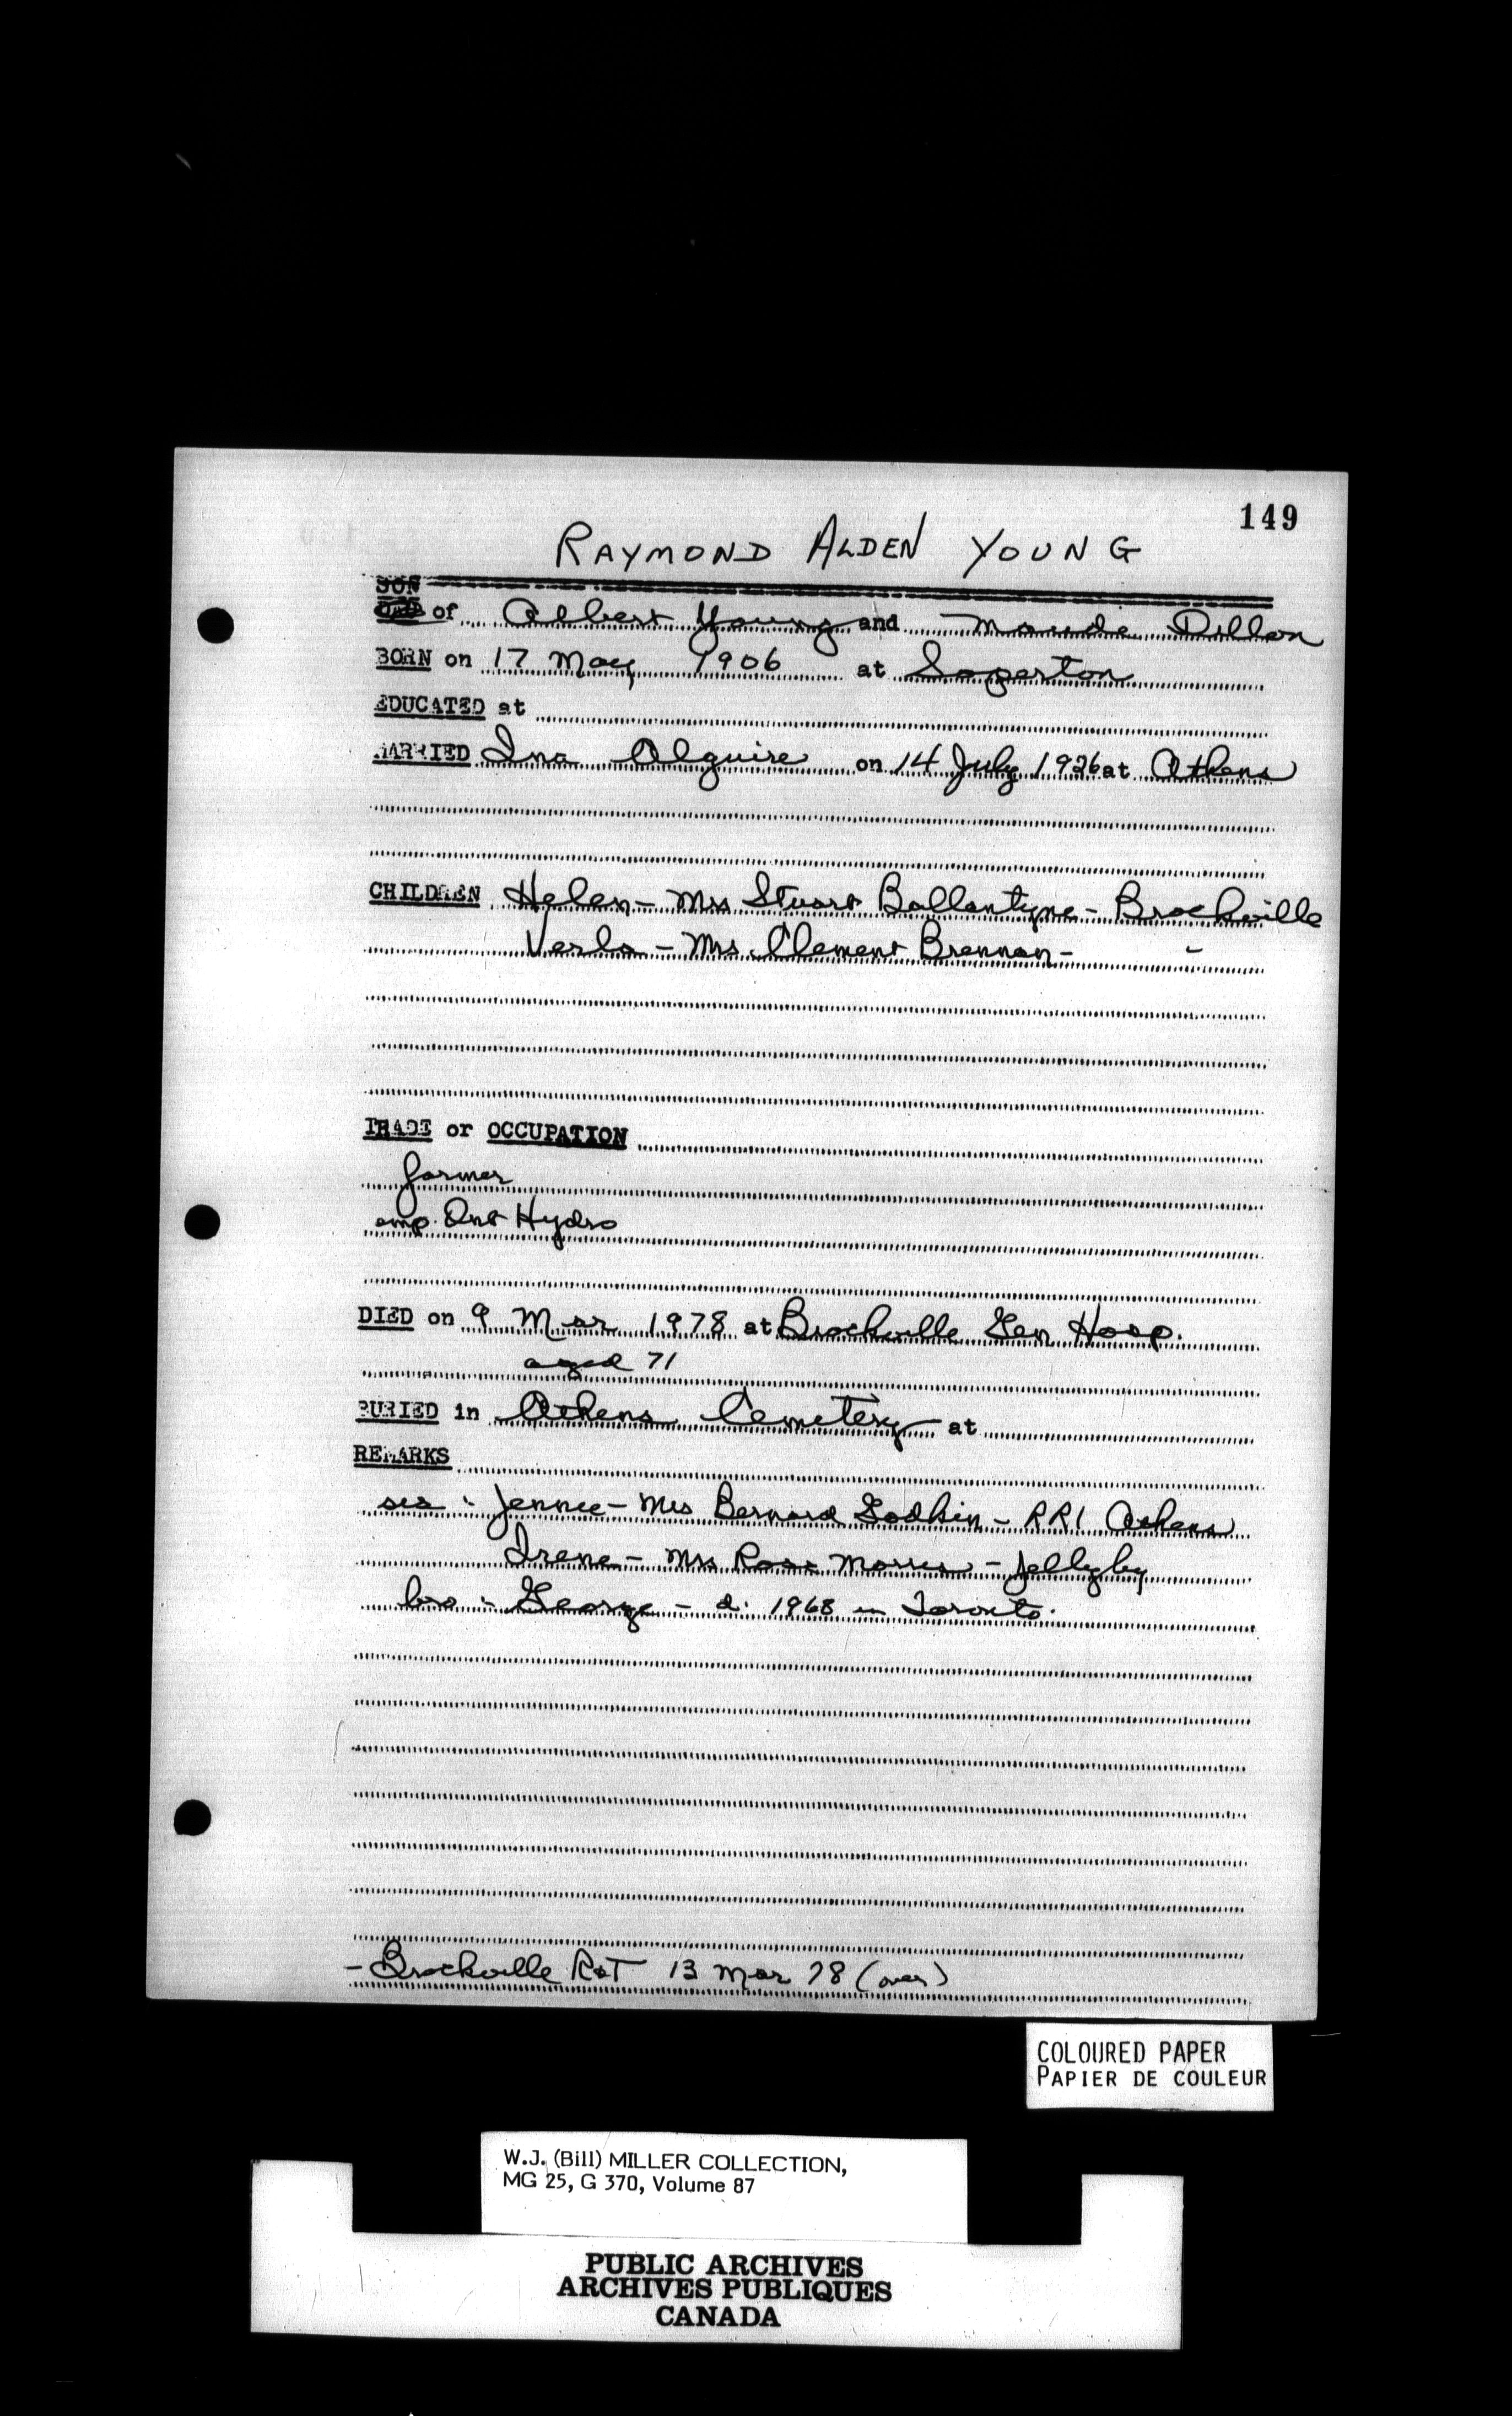 149
RAYMOND ALDEN YOUNG
SON
of Albert Young and Maude Dillon
BORN on 17 May 1906 at Soperton
EDUCATED at
MARRIED Ina Alguire on 14 July 1926 at Athens
CHILDREN Helen - Mrs Stuart Ballantyne - Brockville
Verla - Mrs. Clement Brennan - "
TRADE or OCCUPATION
farmer
emp. Ont Hydro
DIED on 9 Mar 1978 at Brockville Gen Hosp.
aged 71
BURIED in Athens Cemetery at
REMARKS
sis : Jennie - Mrs Bernard Godkin - RR1 Athens
Irene - Mrs Ross Morris - Jellyby
bro : George - d. 1968 in Toronto.
- Brockville R&T 13 Mar 78 (over)
COLOURED PAPER
PAPIER DE COULEUR
W.J. (Bill) MILLER COLLECTION,
MG 25, G 370, Volume 87
PUBLIC ARCHIVES
ARCHIVES PUBLIQUES
CANADA